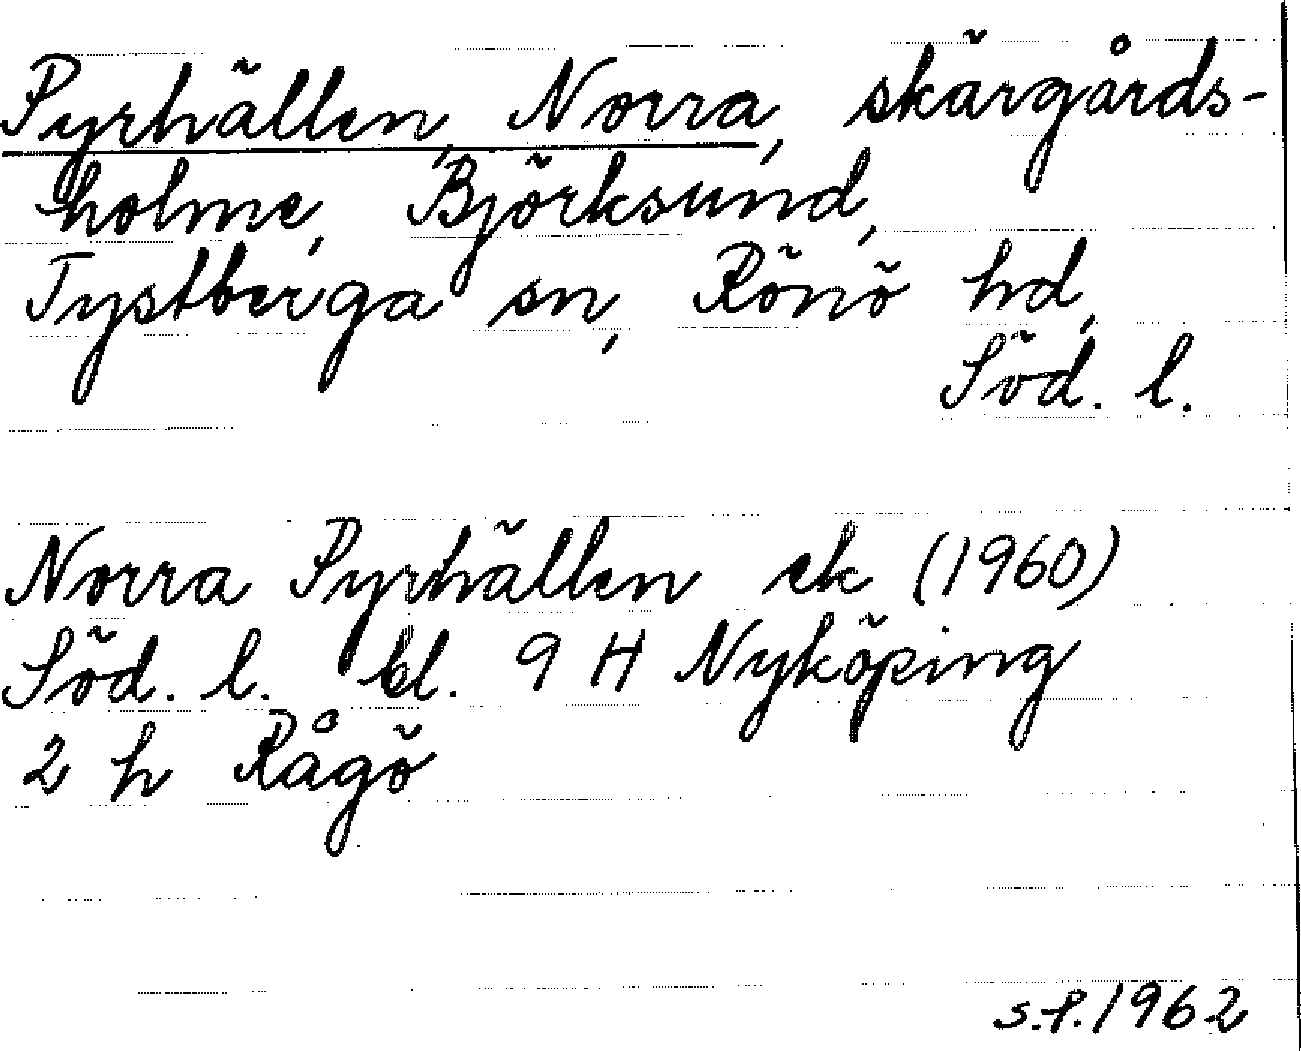 Pyrhällen, Norra, skärgårds-
holme, Björksund,
Tystberga sn, Rönö hd,
Söd. l.
Norra Pyrhällen ek (1960)
Söd. l. bl. 9 H Nyköping
2 h Rågö
s.f. 1962